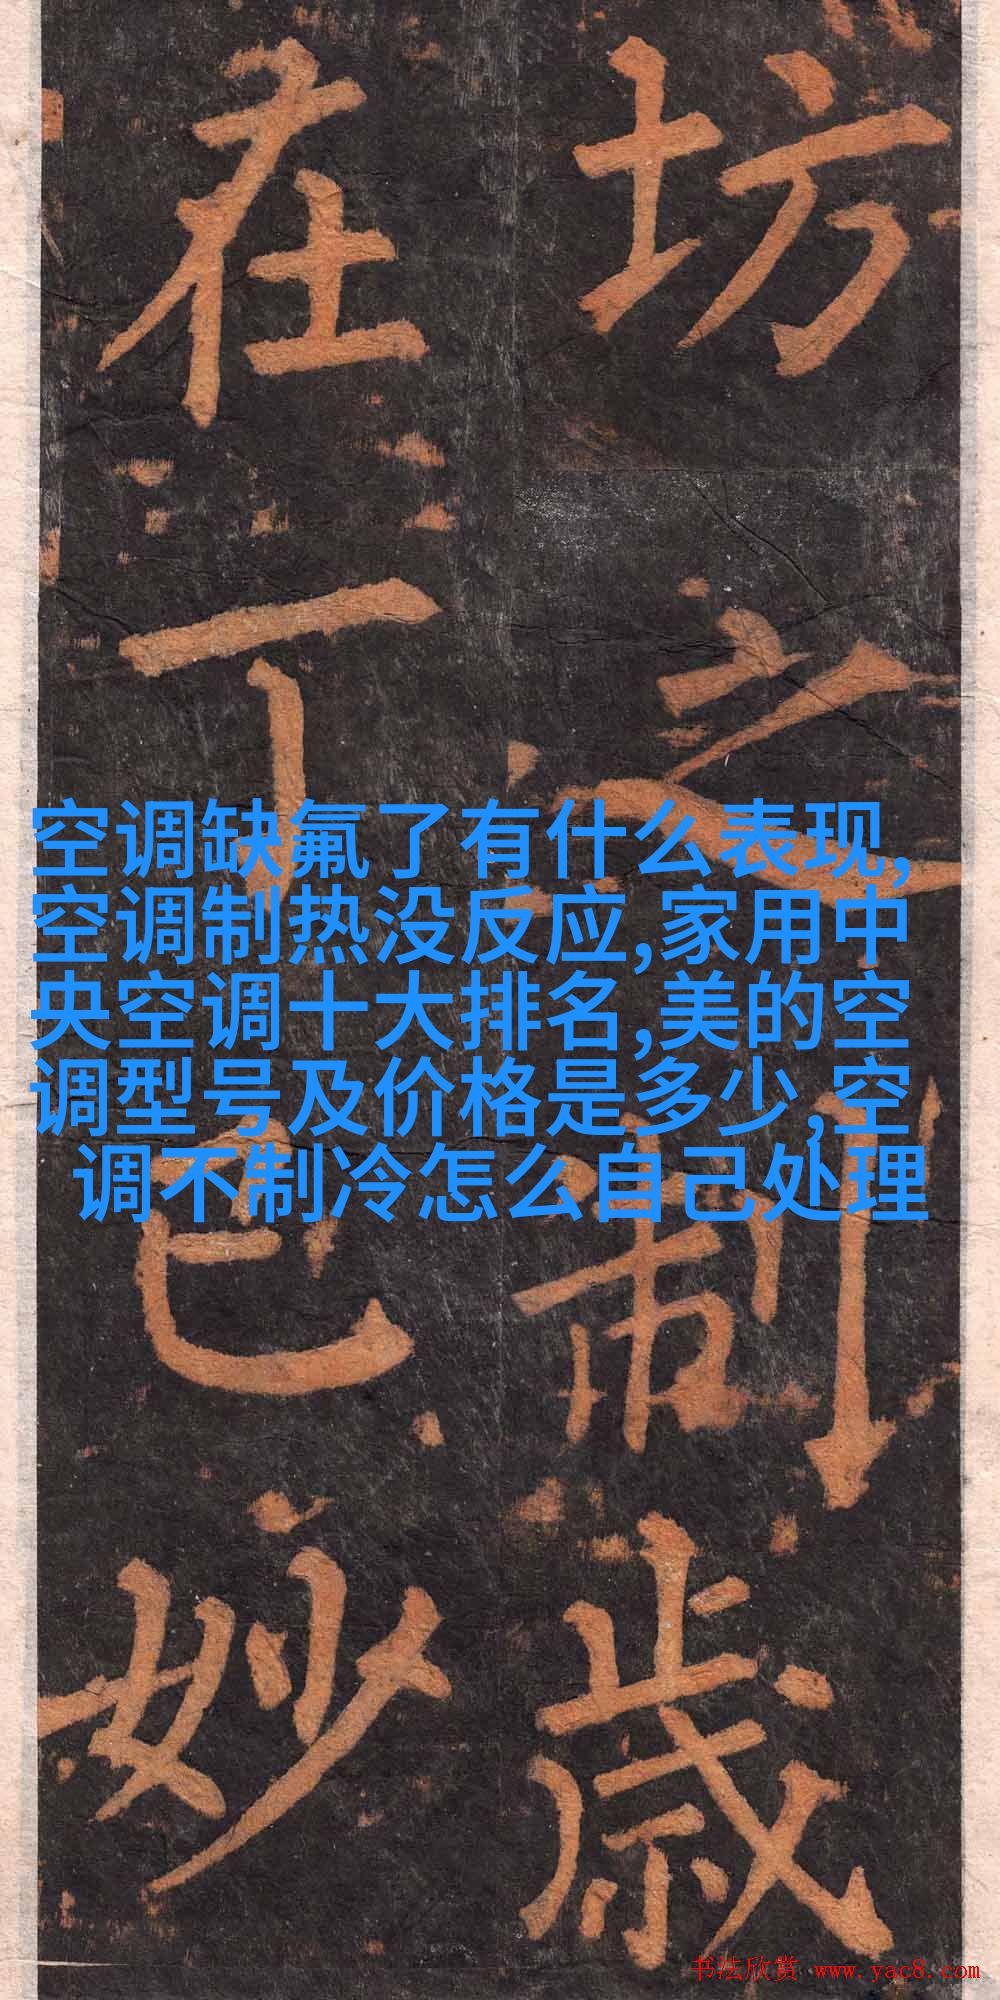 坊之制歲
在丁巳妙
空调缺氟了有什么表现,
空调制热没反应,家用中
央空调十大排名,美的空
调型号及价格是多少,空
调不制冷怎么自己处理
书法欣赏 www.yac8.com